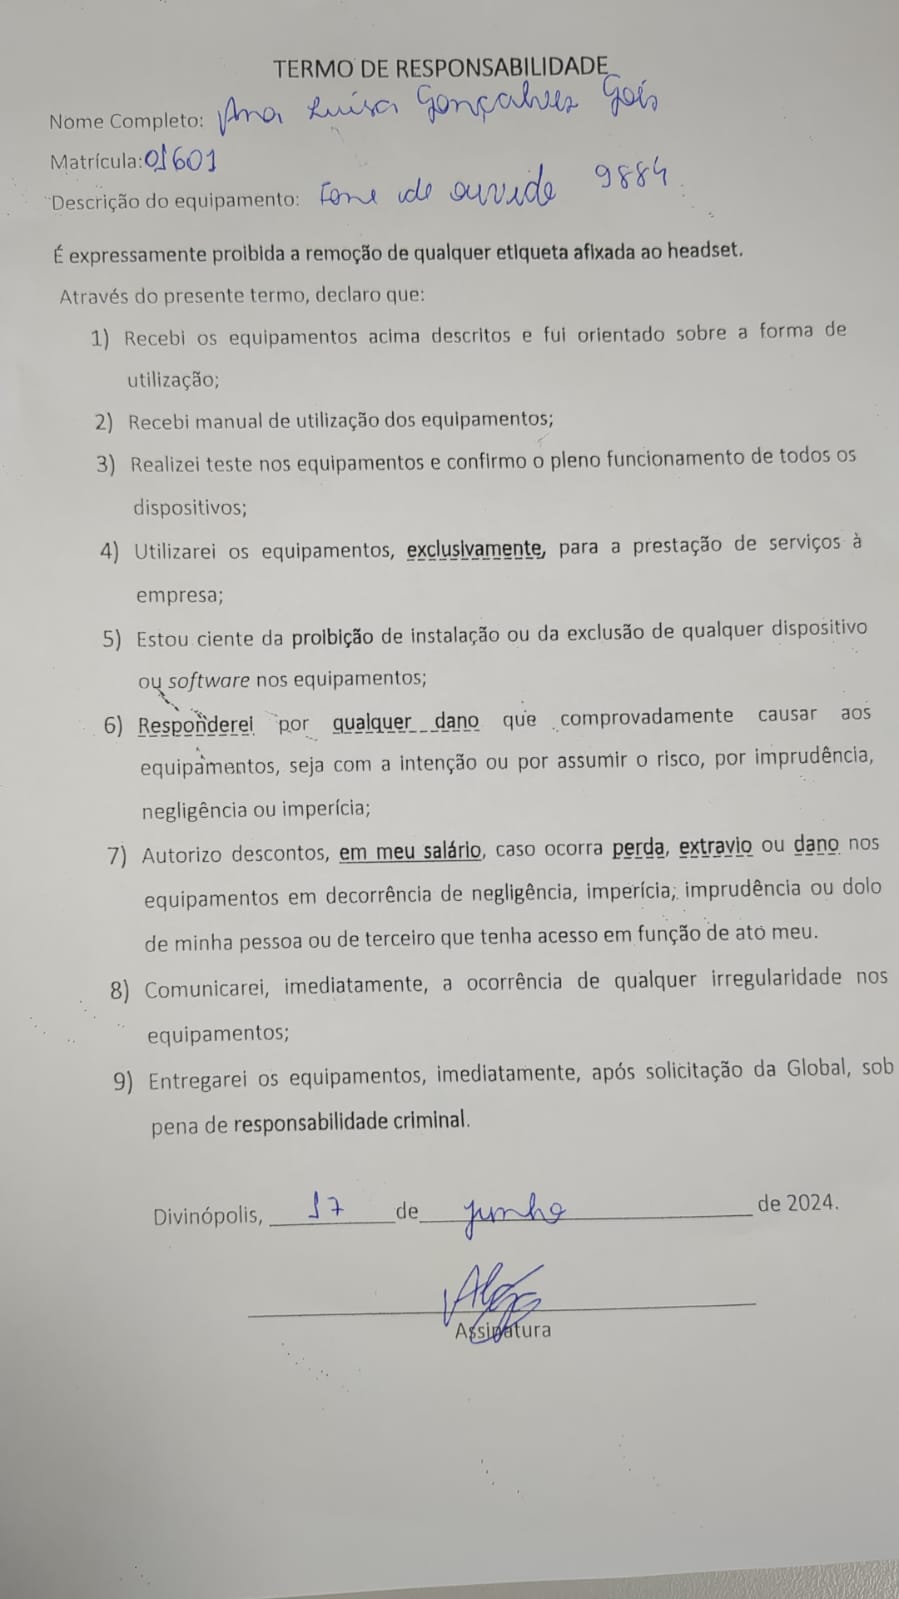 TERMO DE RESPONSABILIDADE
Nome Completo: Ana Luisa Gonçalves Gois
Matrícula: 01601
Descrição do equipamento: Fone de ouvido 9884
É expressamente proibida a remoção de qualquer etiqueta afixada ao headset.
Através do presente termo, declaro que:
1) Recebi os equipamentos acima descritos e fui orientado sobre a forma de
utilização;
2) Recebi manual de utilização dos equipamentos;
3) Realizei teste nos equipamentos e confirmo o pleno funcionamento de todos os
dispositivos;
4) Utilizarei os equipamentos, exclusivamente, para a prestação de serviços à
empresa;
5) Estou ciente da proibição de instalação ou da exclusão de qualquer dispositivo
ou software nos equipamentos;
6) Responderei por qualquer dano que comprovadamente causar aos
equipamentos, seja com a intenção ou por assumir o risco, por imprudência,
negligência ou imperícia;
7) Autorizo descontos, em meu salário, caso ocorra perda, extravio ou dano nos
equipamentos em decorrência de negligência, imperícia, imprudência ou dolo
de minha pessoa ou de terceiro que tenha acesso em função de ato meu.
8) Comunicarei, imediatamente, a ocorrência de qualquer irregularidade nos
equipamentos;
9) Entregarei os equipamentos, imediatamente, após solicitação da Global, sob
pena de responsabilidade criminal.
Divinópolis, 17 de junho de 2024.
Assinatura